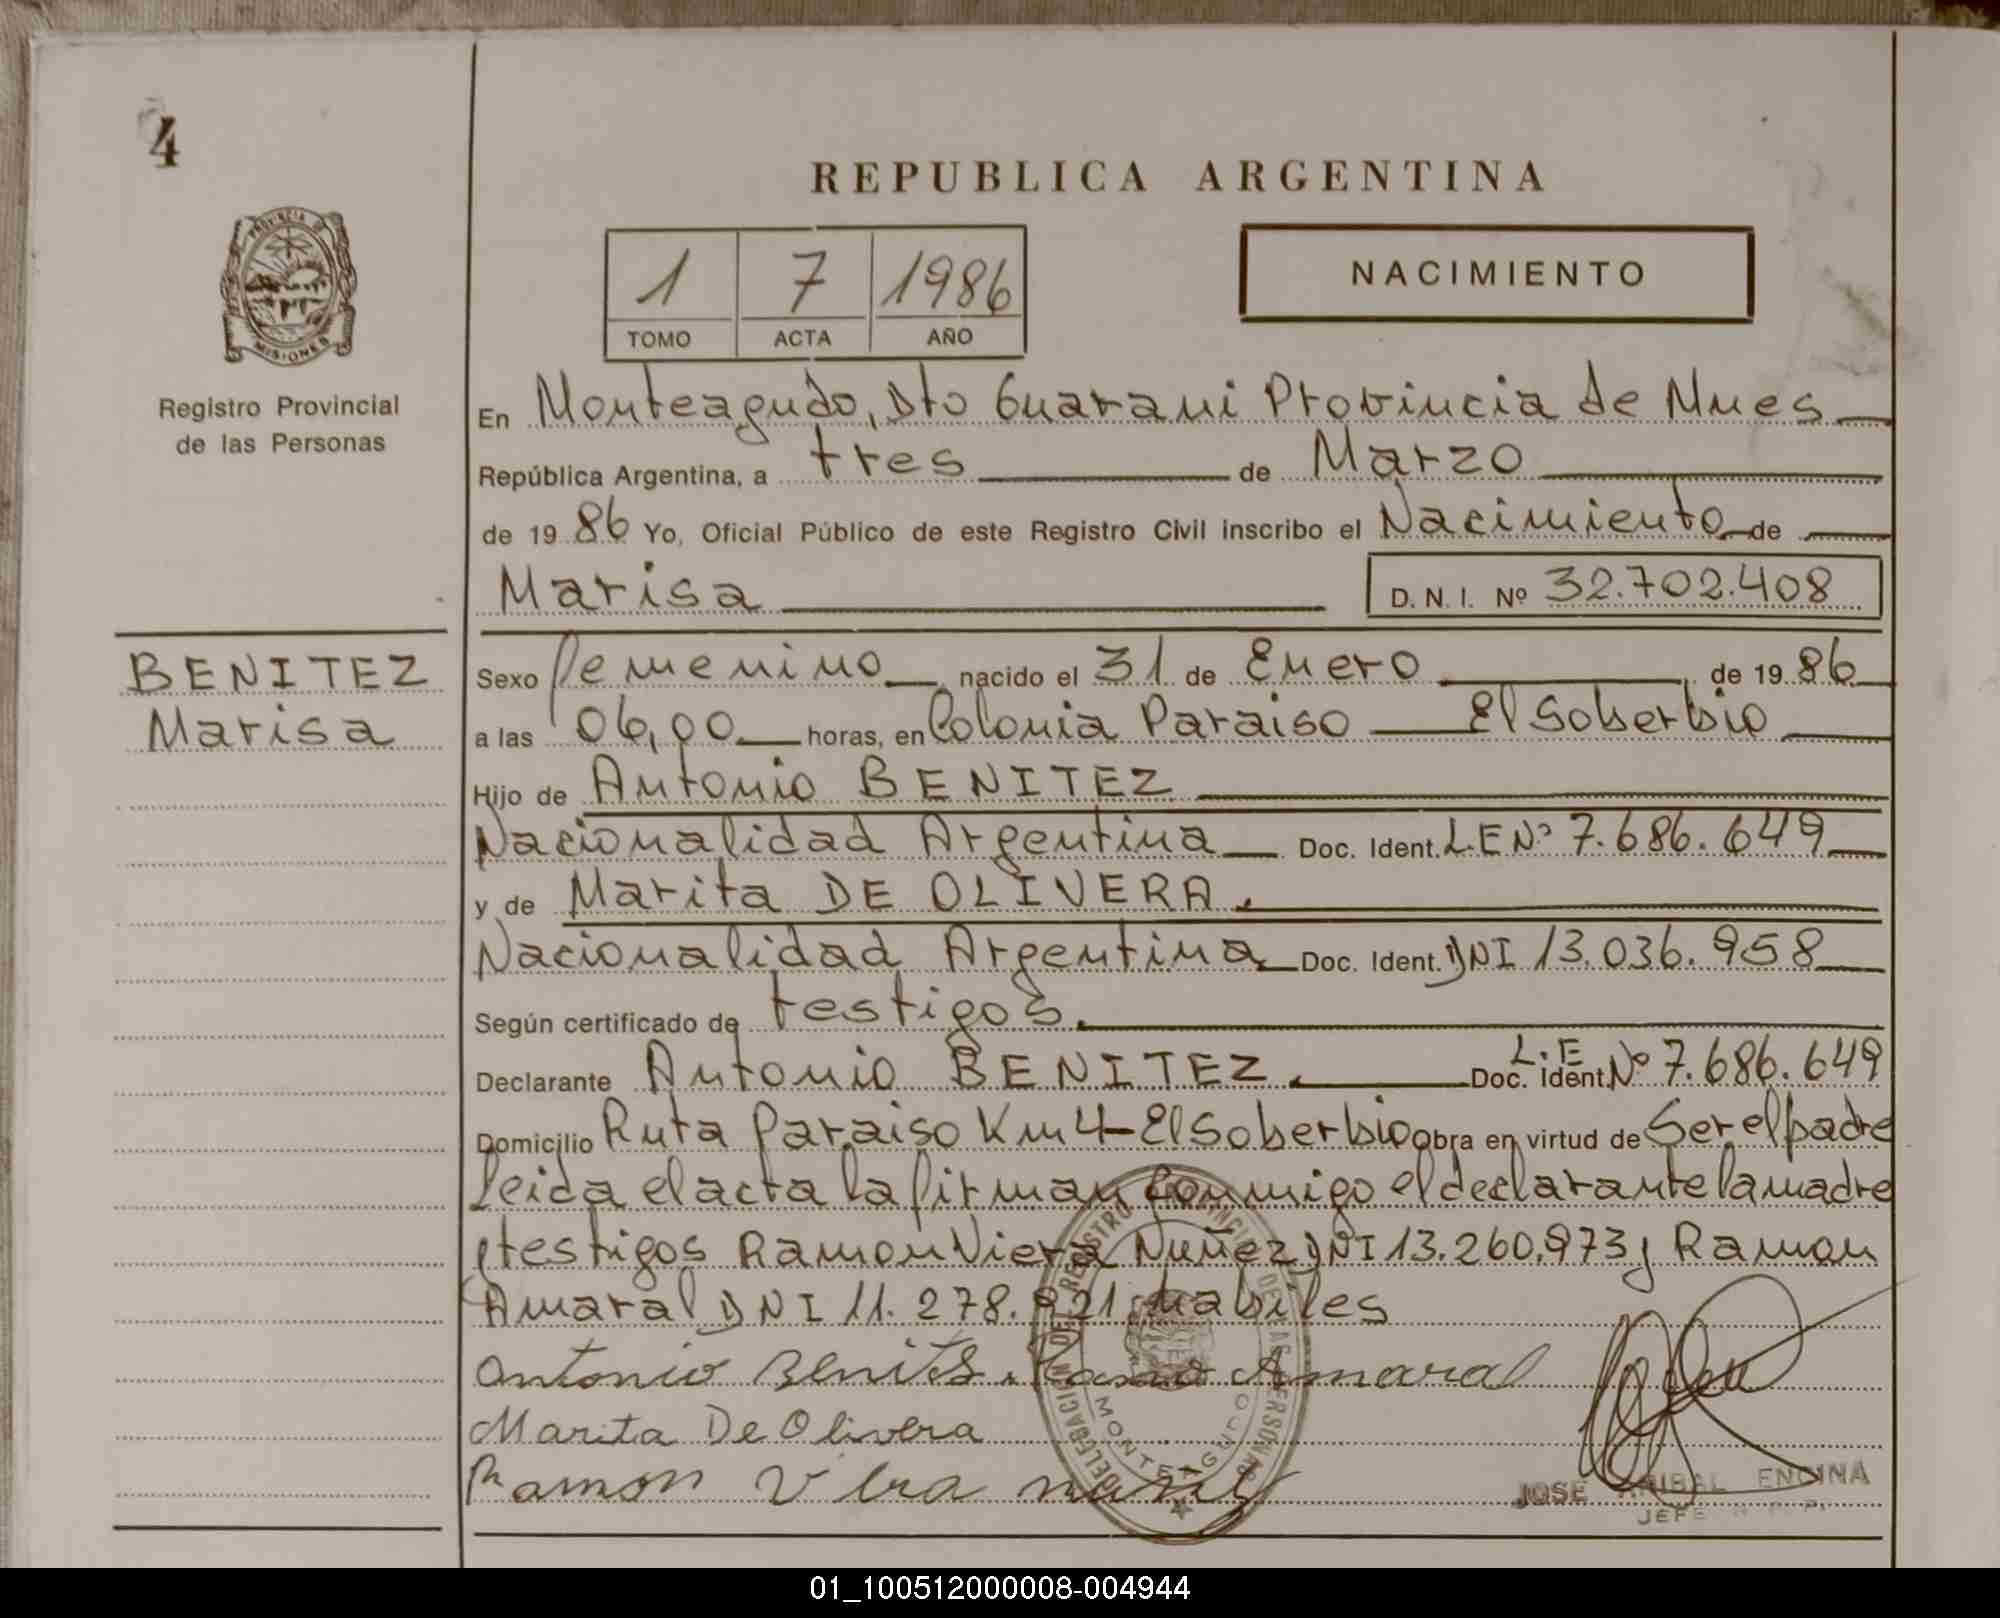 4
REPUBLICA ARGENTINA
PROVINCIA D
MISIONES
Registro Provincial
de las Personas
1 7 1986
TOMO ACTA AÑO
NACIMIENTO
En Monteagudo, Dto Guarani Provincia de Mnes
República Argentina, a tres de Marzo
de 1986 Yo, Oficial Público de este Registro Civil inscribo el Nacimiento de
Marisa D. N. I. Nº 32.702.408
BENITEZ
Marisa
Sexo femenino nacido el 31 de Enero de 1986
a las 06,00 horas, en Colonia Paraiso El Soberbio
Hijo de Antonio BENITEZ
Nacionalidad Argentina Doc. Ident. L.E Nº 7.686.649
y de Marita DE OLIVERA.
Nacionalidad Argentina Doc. Ident. DNI 13.036.958
Según certificado de testigos.
Declarante Antonio BENITEZ. Doc. Ident. L.E Nº 7.686.649
Domicilio Ruta Paraiso Km 4-El Soberbio obra en virtud de Ser el padre
Leida el acta la firman conmigo el declarante la madre
y testigos Ramon Viera Nuñez DNI 13.260.973 y Ramon
Amaral DNI 11.278.921 habiles
Antonio Benites. Amaral
Marita De Olivera
Ramon
DELEGACION DEL REGISTRO PROVINCIAL DE LAS PERSONAS
MONTEAGUDO
JOSE ANIBAL ENCINA
JEFE
01_100512000008-004944